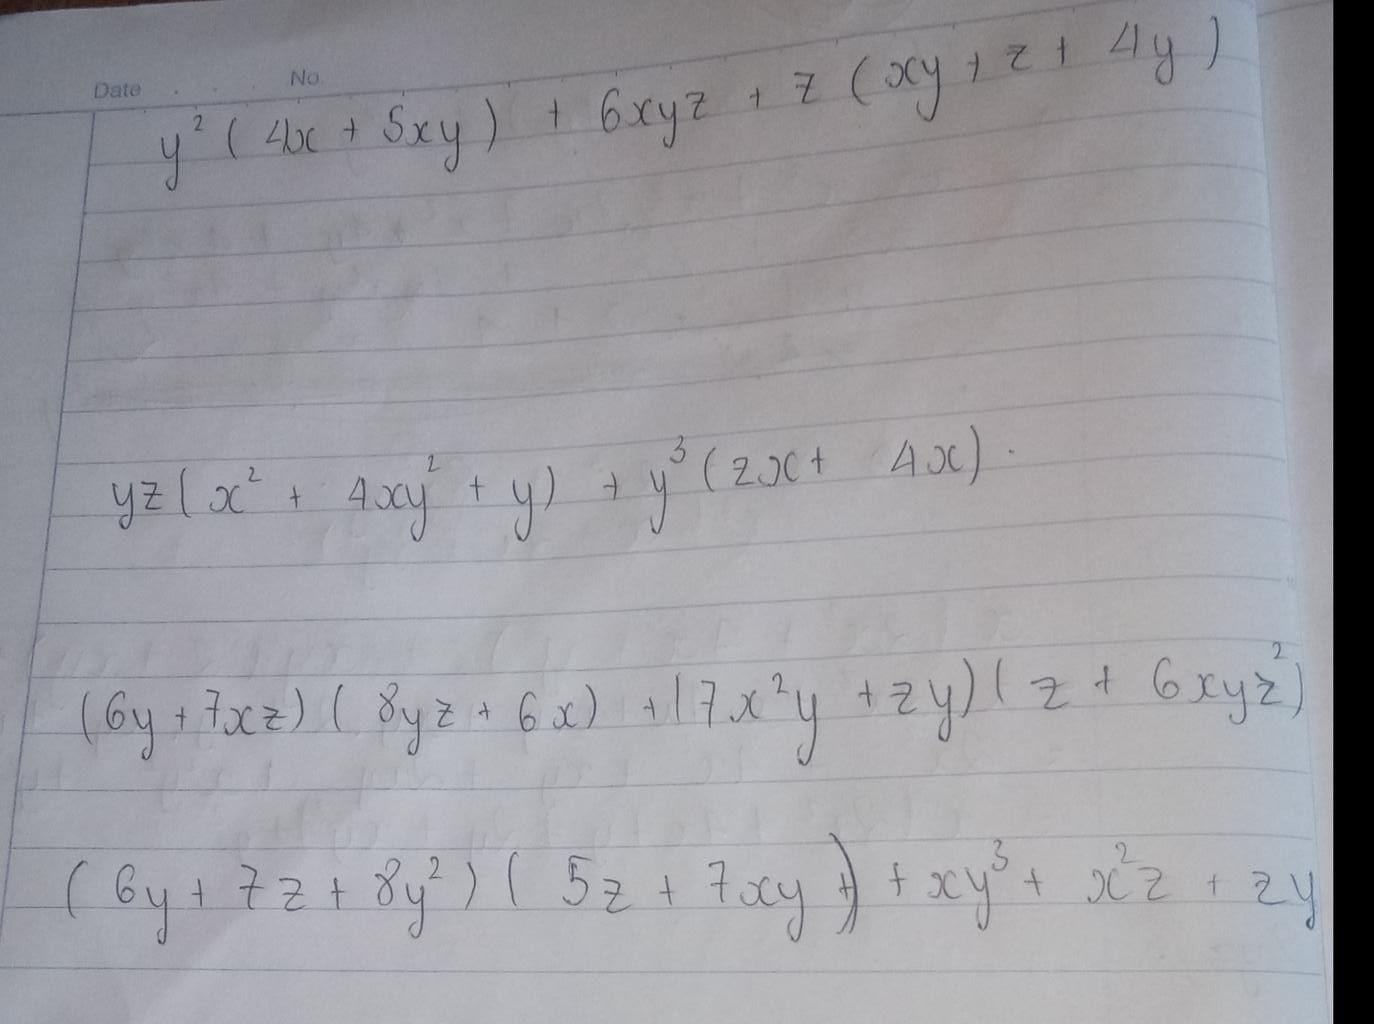 Date . . . No
y² ( 4x + 5xy ) + 6xyz + z ( xy + z + 4y )
yz ( x² + 4xy² + y ) + y³ ( zx + 4x ) .
( 6y + 7xz ) ( 8yz + 6x ) + ( 7x²y + zy ) ( z + 6xyz² )
( 6y + 7z + 8y² ) ( 5z + 7xy ) + xy³ + x²z + zy